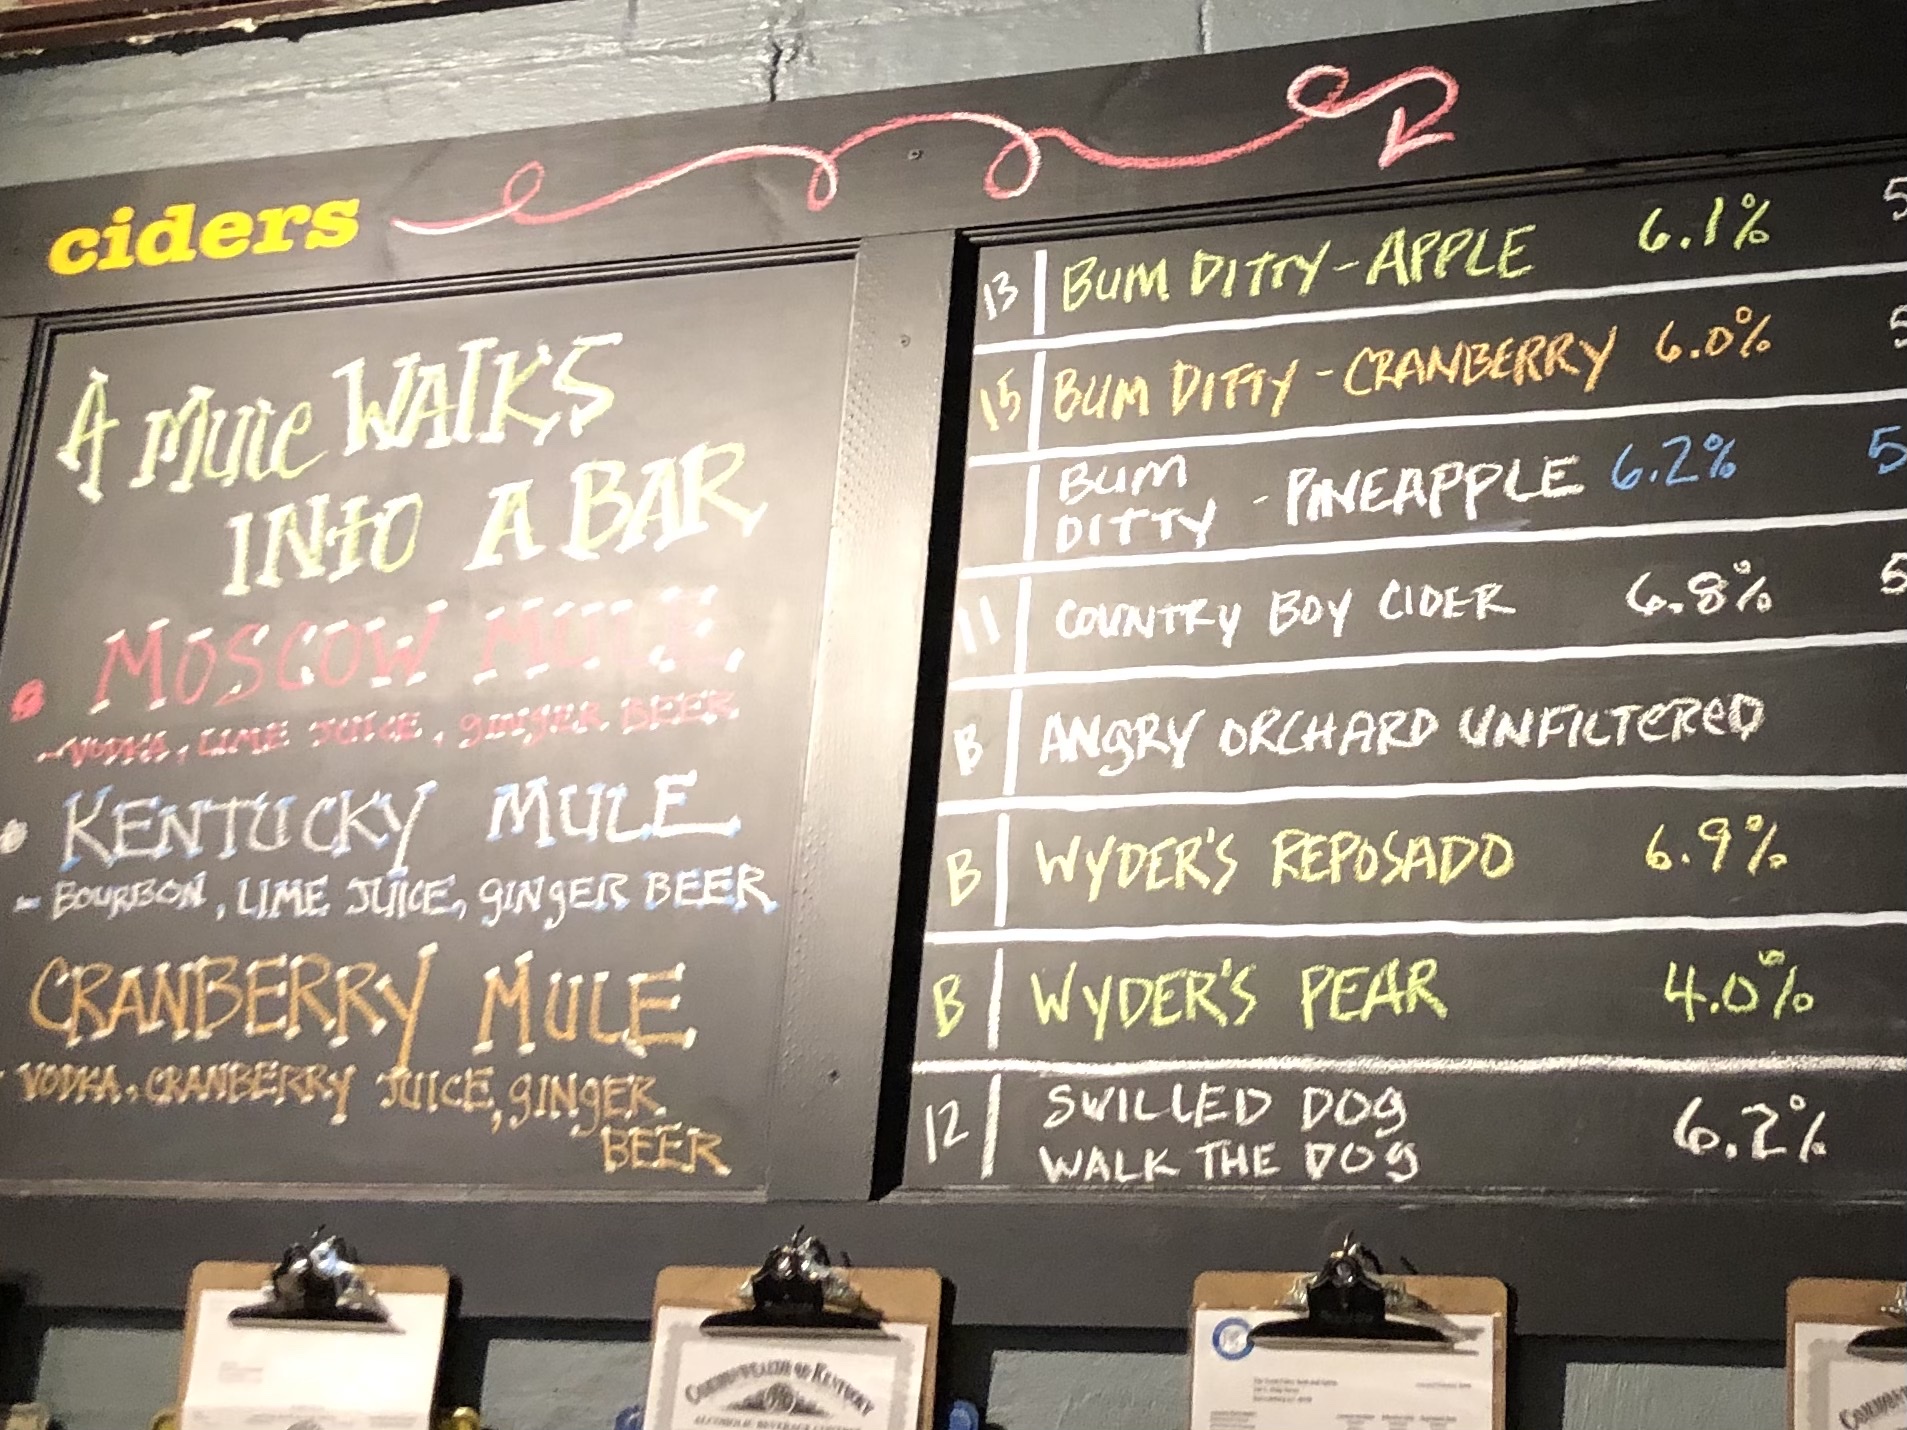 ciders
A MULE WALKS
INTO A BAR
MOSCOW MULE
- VODKA, LIME JUICE, GINGER BEER
KENTUCKY MULE
- BOURBON, LIME JUICE, GINGER BEER
CRANBERRY MULE
VODKA, CRANBERRY JUICE, GINGER
BEER
13 BUM DITTY - APPLE 6.1% 5
15 BUM DITTY - CRANBERRY 6.0% 5
BUM
DITTY - PINEAPPLE 6.2% 5
11 COUNTRY BOY CIDER 6.8% 5
B ANGRY ORCHARD UNFILTERED
B WYDER'S REPOSADO 6.9%
B WYDER'S PEAR 4.0%
12 SWILLED DOG 6.2%
WALK THE DOG
COMMONWEALTH OF KENTUCKY
ALCOHOLIC BEVERAGE CONTROL